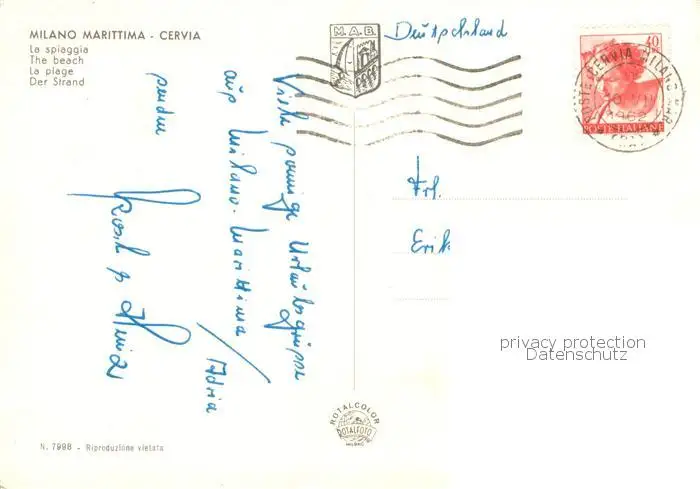 MILANO MARITTIMA - CERVIA
La spiaggia
The beach
La plage
Der Strand
M.A.B.
Deutschland
40
POSTE CERVIA MILANO MAR
1962
POSTE ITALIANE
Viele sonnige Urlaubsgrüsse
aus Milano-Marittima / Adria
senden
Frl.
Erik
privacy protection
Datenschutz
ROTALCOLOR
ROTALFOTO
MILANO
N. 7998 - Riproduzione vietata